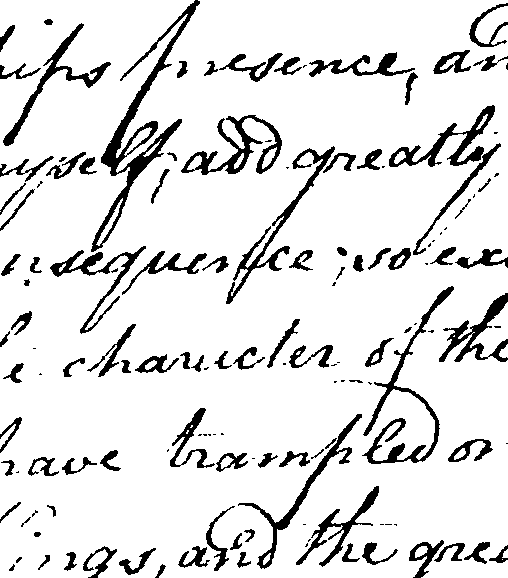 ships presence, an
myself, add greatly
nsequence; so ex
he character of the
have trampled on
lings, and the grea